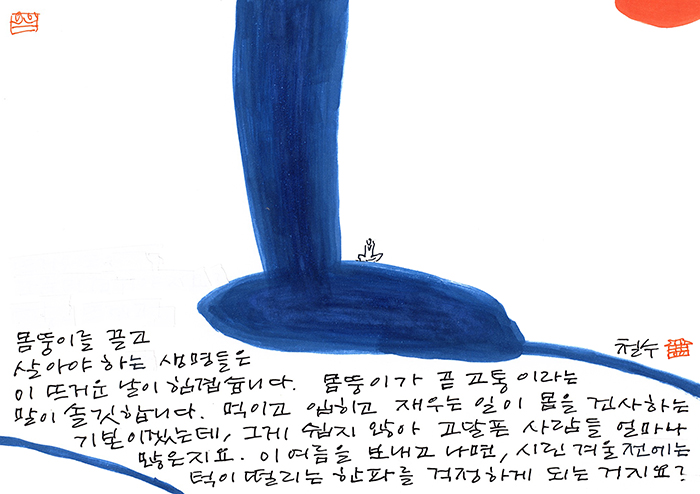 몸뚱이를 끌고
살아야 하는 생명들은
이 뜨거운 날이 힘겹습니다. 몸뚱이가 곧 고통이라는
말이 솔깃합니다. 먹이고 입히고 재우는 일이 몸을 건사하는
기본이겠는데, 그게 쉽지 않아 고달픈 사람들 얼마나
많은지요. 이 여름을 보내고 나면, 시린 겨울전에는
턱이 떨리는 한파를 걱정하게 되는 거지요?
철수